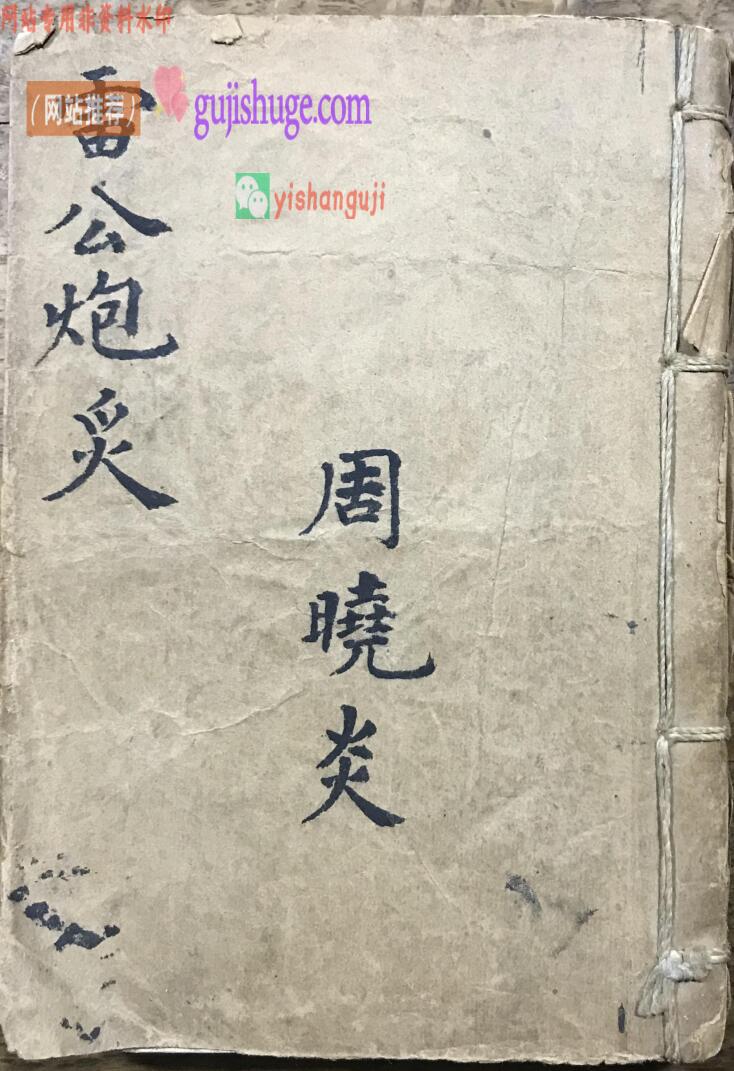 网站专用非资料水印
（网站推荐）
gujishuge.com
yishanguji
雷公炮炙
周曉炎